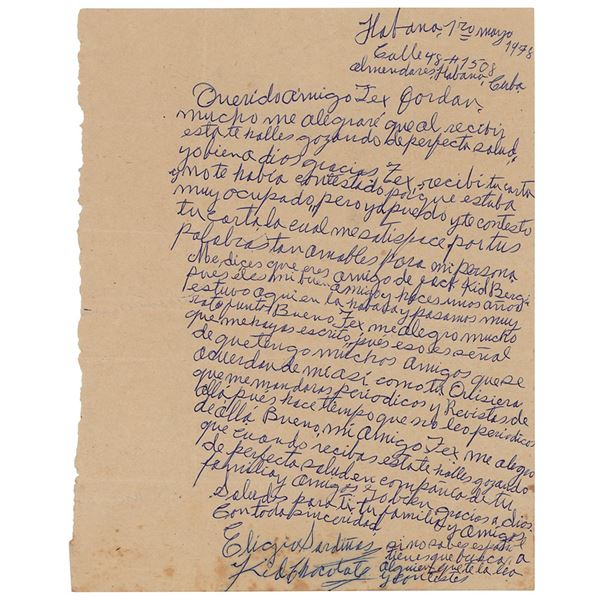 Habana, 1ro mayo
1978
Calle 48 # 1508
almendares Habana, Cuba
Querido amigo Tex Jordan,
mucho me alegraré que al recibir
esta te halles gozando de perfecta salud,
yo bien a dios gracias Tex, recibi tu carta
y no te había contestado porque estaba
muy ocupado, pero ya puedo y te contesto
tu carta la cual me satisface por tus
palabras tan amables para mi persona
Me dices que eres amigo de Jack Kid Berg
pues el es mi buen amigo y hace unos años
estuvo aqui en la habana y pasamos muy
rato juntos Bueno Tex me alegro mucho
que me hayas escrito, pues eso es señal
de que tengo muchos amigos que se
acuerdan de mi asi como tu Quisiera
que me mandaras periodicos y Revistas de
allá pues hace tiempo que no leo periodicos
de allá Bueno, mi amigo Tex me alegro
que cuando recibas esta te halles gozando
de perfecta salud en compañia de tu
familia y amigos yo bien gracias a dios
Saludes para ti tu familia y amigos
con toda sinceridad
Eligio Sardiñas
Kid Chocolate
si no sabes español
tienes que buscar a
alguien que te la lea
y contestes